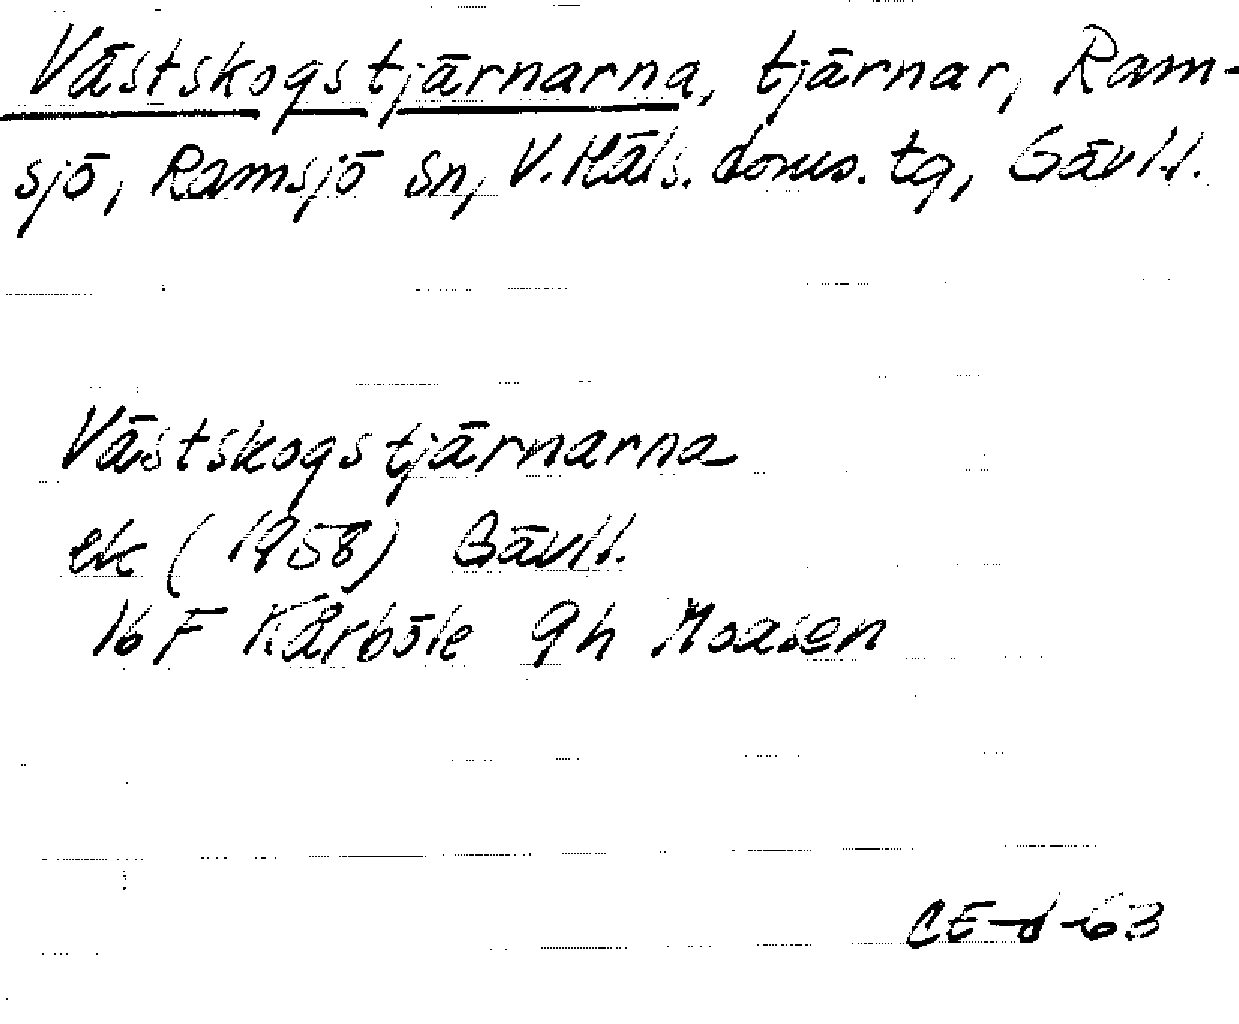 Västskogstjärnarna, tjärnar, Ram-
sjö, Ramsjö sn, V. Häls. doms. tg, Gävl.l.
Västskogstjärnarna
ek (1958) Gävl.l.
16 F Kårböle 9h Moasen
CE-d-63